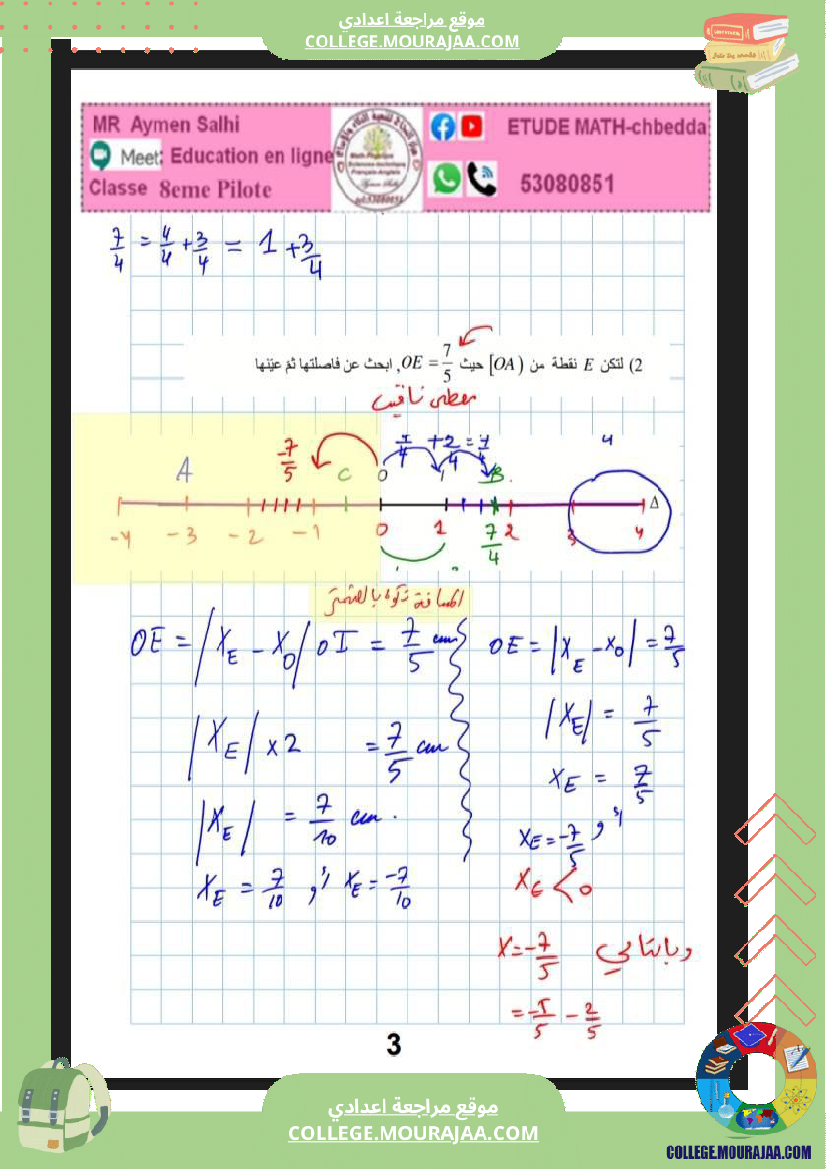 موقع مراجعة اعدادي
COLLEGE.MOURAJAA.COM
MR Aymen Salhi
ETUDE MATH-chbedda
Meet: Education en ligne
Classe 8eme Pilote
53080851
7/4 = 4/4 + 3/4 = 1 + 3/4
2) لتكن E نقطة من [OA) حيث OE = 7/5, ابحث عن فاصلتها ثمّ عيّنها
معطى ناقص
-7/5
+ 2/4 = 7/4
4
A C O I B Δ
-4 -3 -2 -1 0 1 7/4 2 3 4
المسافة تكون بالصنتمتر
OE = |X_E - X_O| OI = 7/5 cm
OE = |X_E - X_O| = 7/5
|X_E| × 2 = 7/5 cm
|X_E| = 7/5
|X_E| = 7/10 cm.
X_E = 7/5
أو X_E = -7/5
X_E = 7/10 أو X_E = -7/10
X_E < 0
وبالتالي X = -7/5
= -5/5 - 2/5
3
موقع مراجعة اعدادي
COLLEGE.MOURAJAA.COM
COLLEGE.MOURAJAA.COM